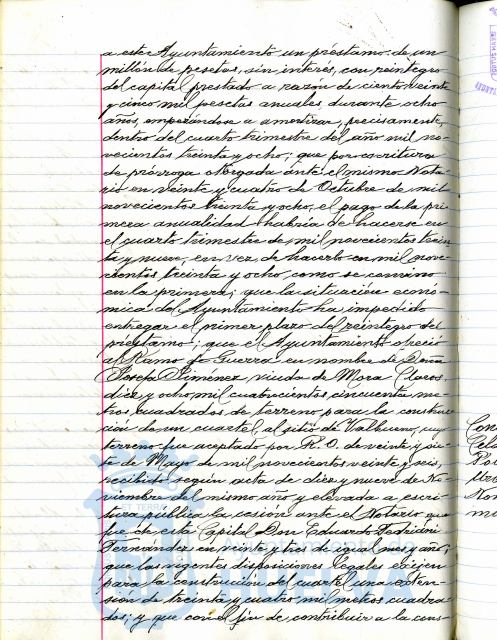 a este Ayuntamiento un préstamo de un
millón de pesetas, sin interés, con reintegro
del capital prestado a razón de ciento veinte
y cinco mil pesetas anuales durante ocho
años, empezándose a amortizar, precisamente,
dentro del cuarto trimestre del año mil no-
vecientos treinta y ocho; que por escritura
de prórroga otorgada ante el mismo Nota-
rio en veinte y cuatro de Octubre de mil
novecientos treinta y ocho, el pago de la pri-
mera anualidad habría de hacerse en
el cuarto trimestre de mil novecientos trein
ta y nueve, en vez de hacerlo en mil nove-
cientos treinta y ocho, como se convino
en la primera; que la situación econó-
mica del Ayuntamiento ha impedido
entregar el primer plazo del reintegro del
préstamo; que el Ayuntamiento ofreció
al Ramo de Guerra en nombre de Doña
Josefa Jiménez, viuda de Mora Claros,
diez y ocho mil cuatrocientos cincuenta me-
tros cuadrados de terreno para la construc
ción de un cuartel, al sitio de Valbueno, cuyo
terreno fue aceptado por R. O. de veinte y sie
te de Mayo de mil novecientos veinte y seis,
recibido según acta de diez y nueve de No-
viembre del mismo año y elevada a escri-
tura pública la cesión ante el Notario que
fue de esta Capital Don Eduardo Fedriani
Fernández en veinte y tres de igual mes y año;
que las vigentes disposiciones legales exijen
para la construcción del cuartel una exten-
sión de treinta y cuatro mil metros cuadra
dos; y que con el fin de contribuir a la cons-